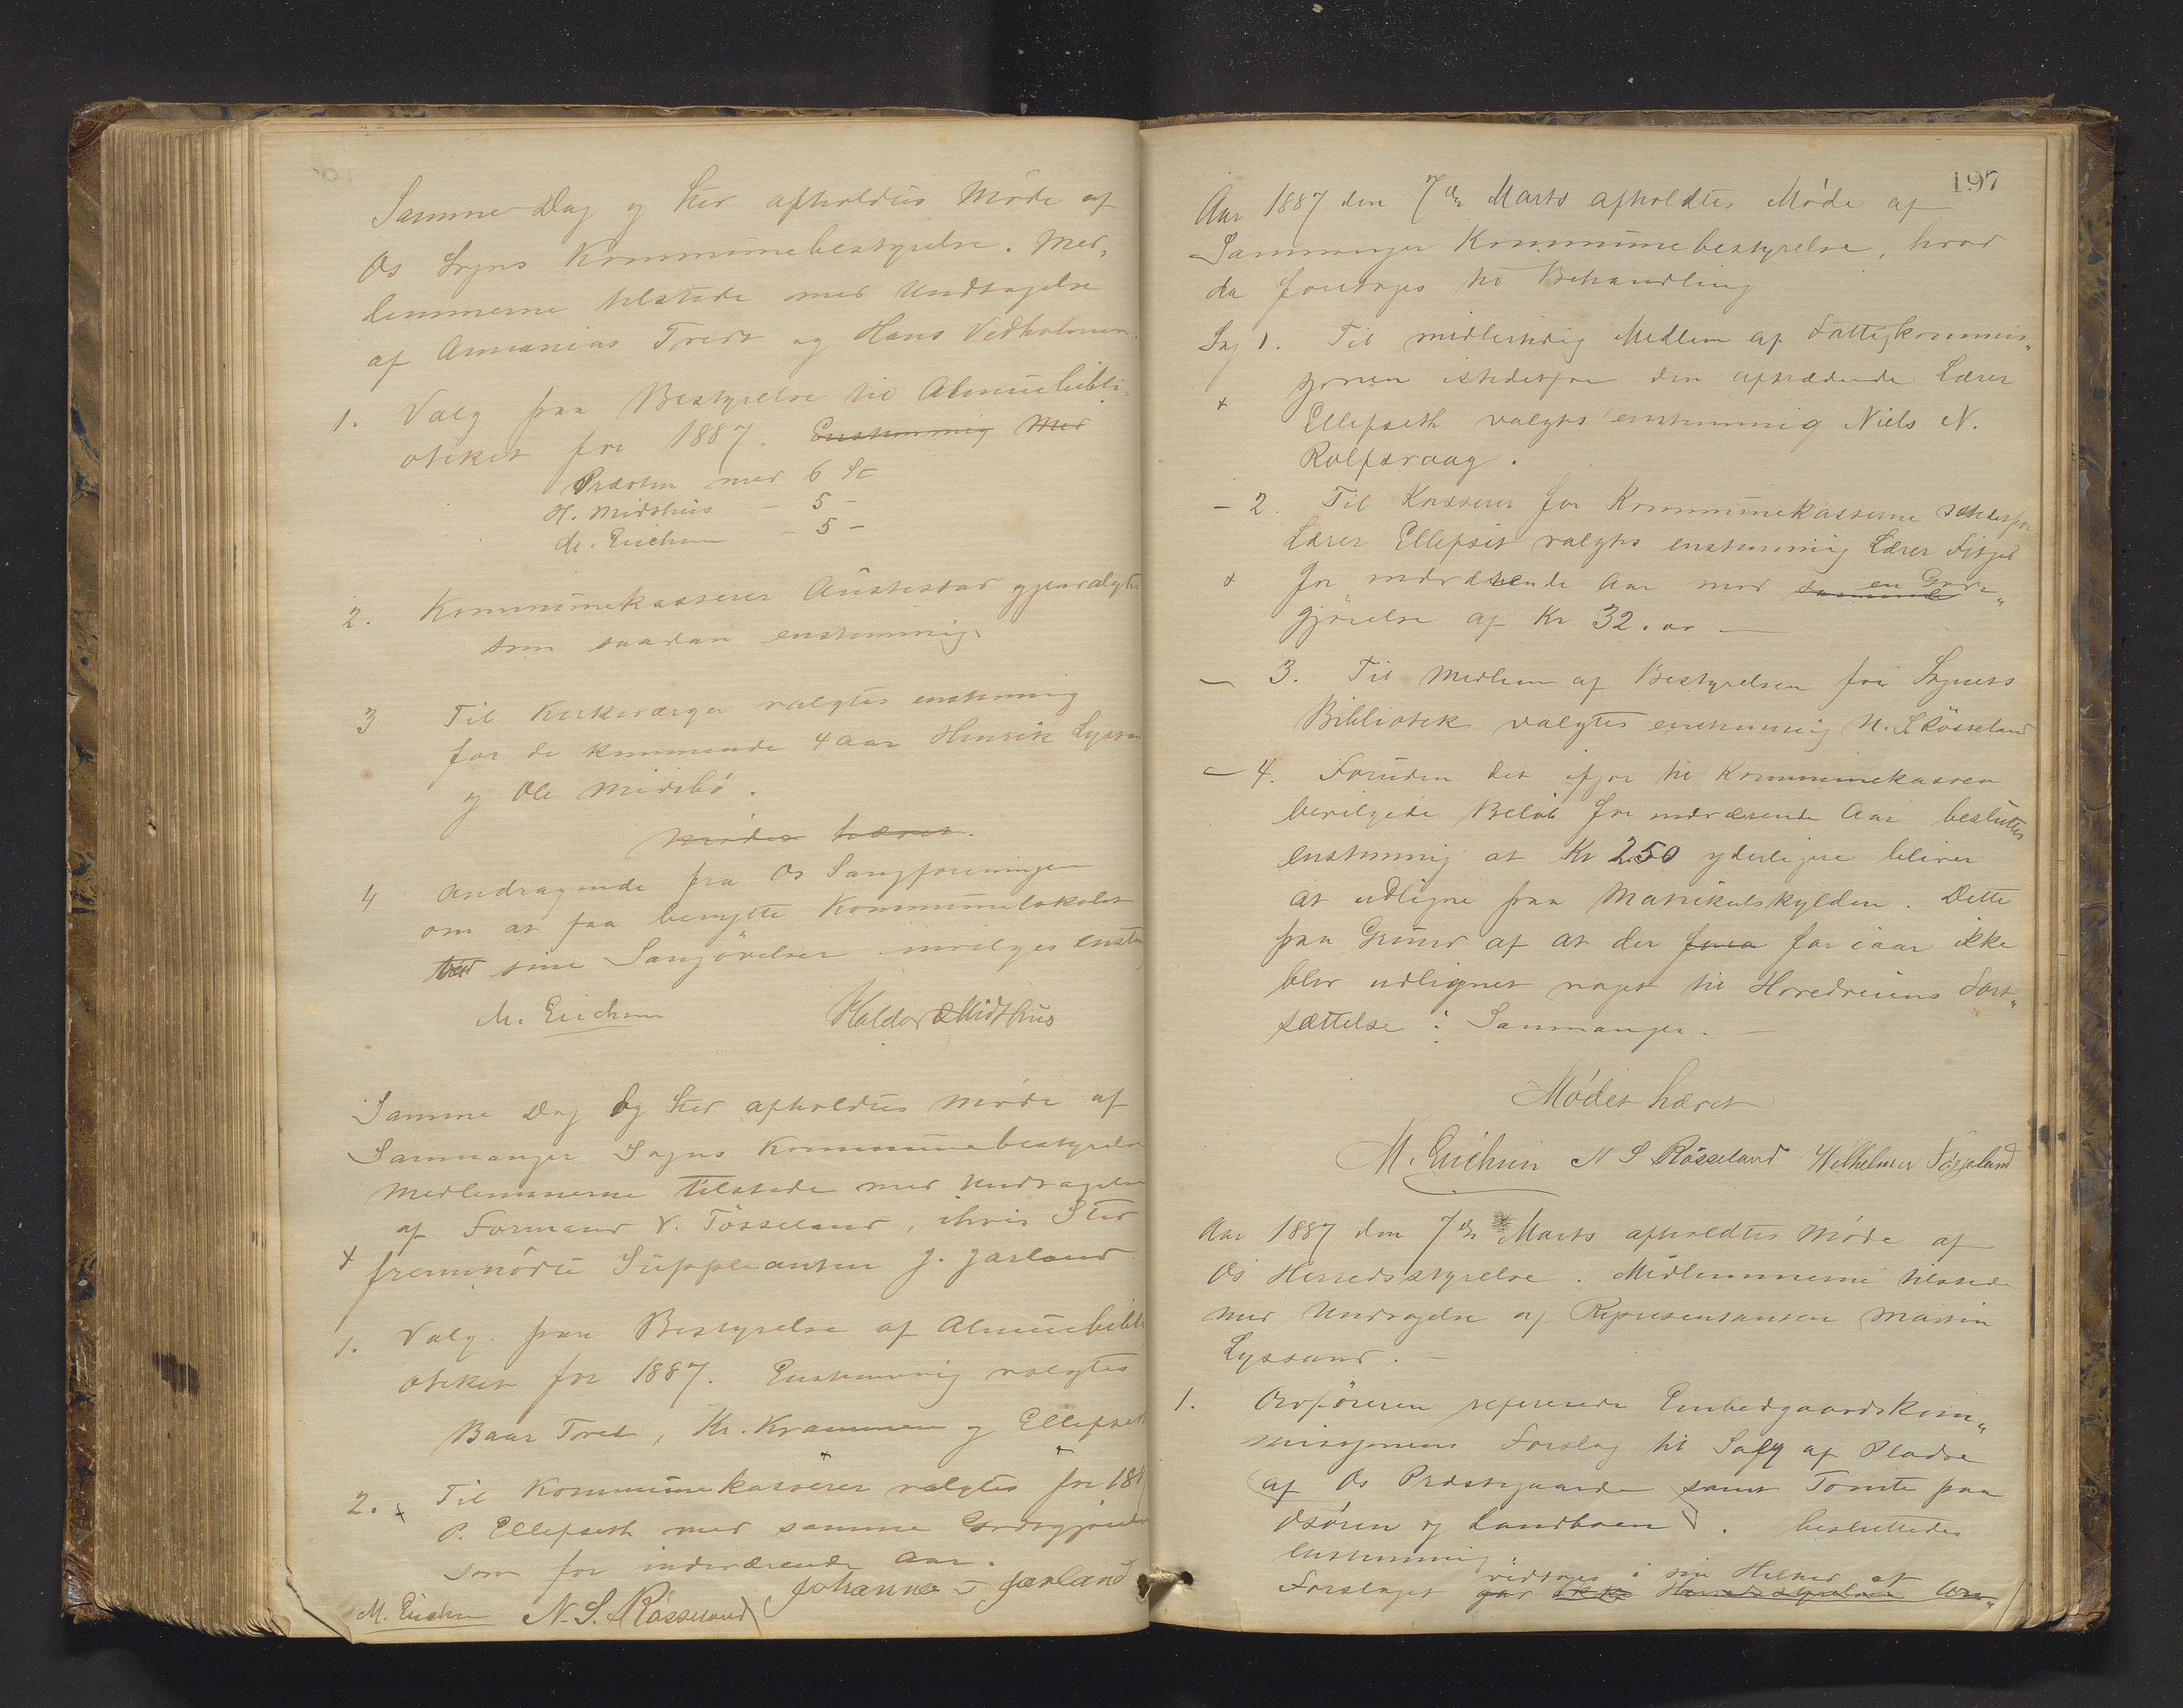 Samme Dag og Sted afholdtes Møde af
Os Sogns Kommunebestyrelse. Med„
lemmerne tilstede med Undtagelse
af Annanias Tveit og Hans Vedholmen.
1. Valg paa Bestyrelse til Almuebibli„
oteket for 1887. Enstemmig med
Præsten med 6 St
H. Midthus – 5 –
M. Erichsen – 5 –
2. Kommunekasserer Austestad gjenvalgtes
som saadan enstemmig.
3 Til Kirkeværger valgtes enstemmig
for de kommende 4 aar Henrik Lyssand
og Ole Midtbø.
Mødet hævet.
4 Andragende fra Os Sangforeningen
om at faa benytte Kommunelokalet
ved sine Sangøvelser indvilges enstm
M. Erichsen Haldor Midthus
Samme Dag og Sted afholdtes Møde af
Samnanger Sogns Kommunebestyrelse
Medlemmerne tilstede med Undtagelse
af Formand V. Tøsseland, ihvis Sted
+ fremmødte Suppleanten J. Jarland
1. Valg paa Bestyrelse af Almuebibli
oteket for 1887. Enstemmig valgtes
Baar Tveit, Kr. Krammen og Ellefseth
2. + Til Kommunekasserer valgtes for 188
P. Ellefseth med samme Godtgjørelse
som for indeværende Aar.
M. Erichsen N. S. Røsseland Johannes J Jarland
197
Aar 1887 den 7de Marts afholdtes Møde af
Samnanger Kommunebestyrelse, hvor
da foretoges til Behandling
Sag 1. Til midlertidig Medlem af Fattigkommis„
sjonen istedetfor den aftrædende Lærer
+ Ellefseth valgtes enstemmig Niels N.
Rolfsvaag.
– 2. Til Kasserer for Kommunekasserne istedetfor
Lærer Ellefset valgtes enstemmig Lærer Fitjet
+ for indeværende Aar mod samme en Godt„
gjørelse af Kr 32.00 —
— 3. Til Medlem af Bestyrelsen for Sognets
Bibliotek valgtes enstemmig N. S Røsseland
– 4. Foruden det ifjor til Kommunekassen
bevilgede Beløb for indeværende Aar besluttes
enstemmig at Kr 250 yderligere bliver
at udligne paa Matrikulskylden. Dette
paa Grund af at der for iaar ikke
blev udlignet noget til Hovedveiens Fort„
sættelse i Samnanger. —
Mødet hævet
M. Erichsen N S Røsseland Wilhelmer Tøsseland
Aar 1887 den 7de Marts afholdtes Møde af
Os Herredsstyrelse. Medlemmerne tilstede
med Undtagelse af Repræsentanten Martin
Lyssand. –
1. Ordføreren refererede Embedgaardskom„
missjonens Forslag til Salg af Pladse
af Os Præstegaard samt Tomte paa
Osøren og Landboen. besluttedes
enstemmig:
vedtages i sin Helhed at
Forslaget gav ikke Herredsstyrelsen